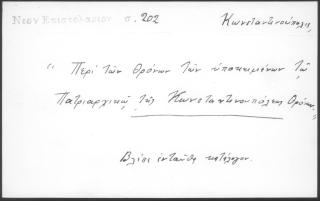 Νεον Επιστολαριον σ. 202
Κωνσταντινούπολις
" Περί τῶν Θρόνων τῶν ὑποκειμένων τῷ
Πατριαρχικῷ τῆς Κωνσταντινουπόλεως Θρόνῳ "
Βλέπε ἐνταῦθα κατάλογον.